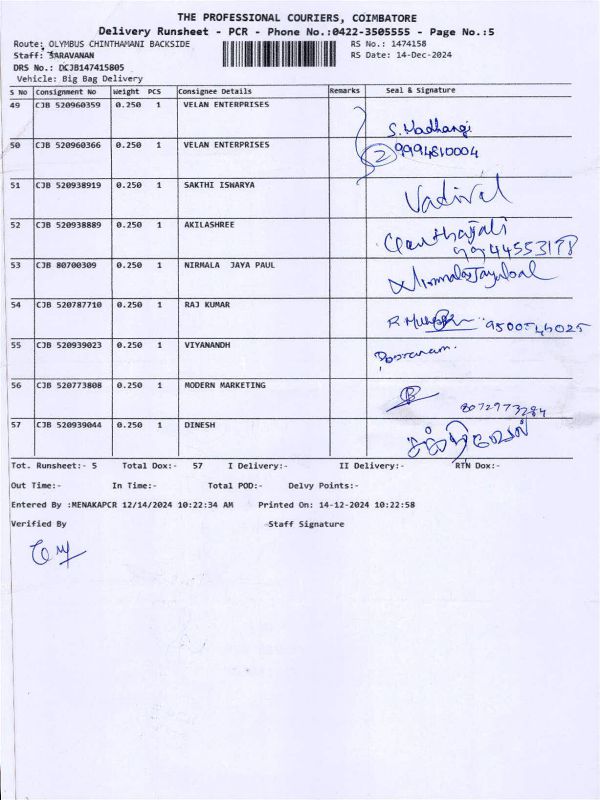 THE PROFESSIONAL COURIERS, COIMBATORE
Delivery Runsheet - PCR - Phone No.:0422-3505555 - Page No.:5
Route: OLYMBUS CHINTHAMANI BACKSIDE RS No.: 1474158
Staff: SARAVANAN RS Date: 14-Dec-2024
DRS No.: DCJB147415805
Vehicle: Big Bag Delivery
S No Consignment No Weight PCS Consignee Details Remarks Seal & Signature
49 CJB 520960359 0.250 1 VELAN ENTERPRISES S. Madhangi
50 CJB 520960366 0.250 1 VELAN ENTERPRISES 2 9994810004
51 CJB 520938919 0.250 1 SAKTHI ISWARYA Vadivel
52 CJB 520938889 0.250 1 AKILASHREE
53 CJB 80700309 0.250 1 NIRMALA JAYA PAUL
54 CJB 520787710 0.250 1 RAJ KUMAR
55 CJB 520939023 0.250 1 VIYANANDH
56 CJB 520773808 0.250 1 MODERN MARKETING 8072973284
57 CJB 520939044 0.250 1 DINESH சக்திவேல்
Tot. Runsheet:- 5 Total Dox:- 57 I Delivery:- II Delivery:- RTN Dox:-
Out Time:- In Time:- Total POD:- Delvy Points:-
Entered By :MENAKAPCR 12/14/2024 10:22:34 AM Printed On: 14-12-2024 10:22:58
Verified By Staff Signature